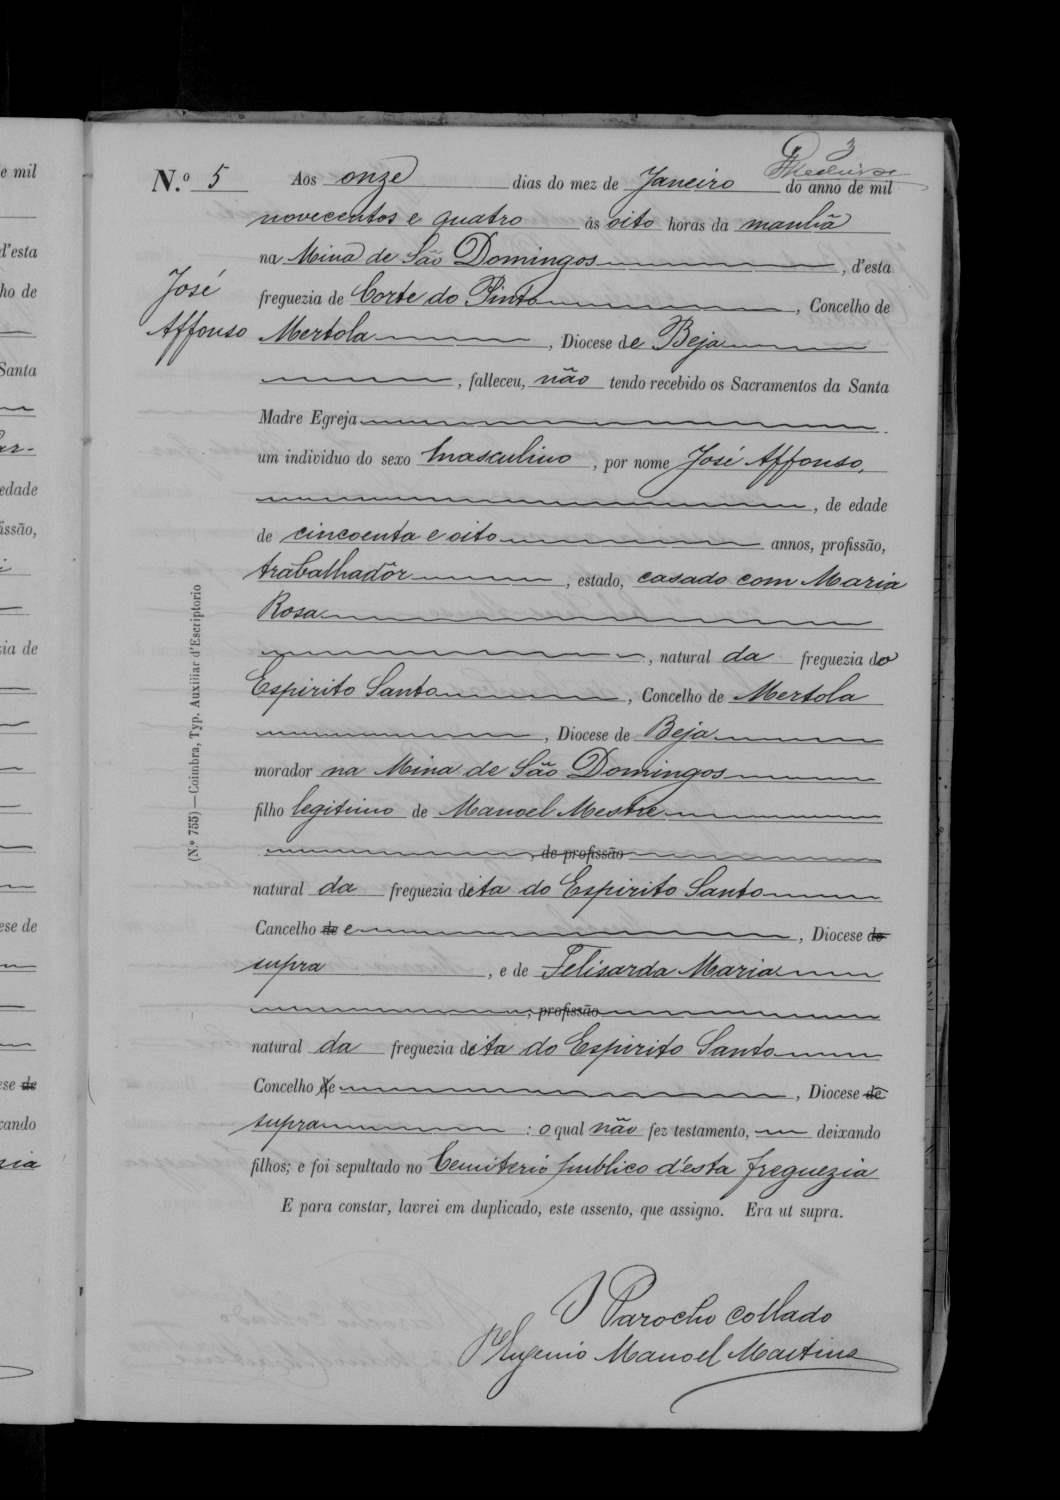 3
N.º 5 Aos onze dias do mez de Janeiro do anno de mil
novecentos e quatro ás oito horas da manhã
na Mina de São Domingos, d'esta
José
Affonso
freguezia de Corte do Pinto, Concelho de
Mertola, Diocese de Beja
, falleceu, não tendo recebido os Sacramentos da Santa
Madre Egreja
um individuo do sexo masculino, por nome José Affonso,
, de edade
de cincoenta e oito annos, profissão,
trabalhadôr, estado, casado com Maria
Rosa
, natural da freguezia do
Espirito Santo, Concelho de Mertola
, Diocese de Beja
morador na Mina de São Domingos
filho legitimo de Manoel Mestre
, de profissão
natural da freguezia dita do Espirito Santo
Cancelho de e, Diocese de
supra, e de Felisarda Maria
, profissão
natural da freguezia dita do Espirito Santo
Concelho de e, Diocese de
supra: o qual não fez testamento, deixando
filhos; e foi sepultado no Cemiterio publico d'esta freguezia
E para constar, lavrei em duplicado, este assento, que assigno. Era ut supra.
O Parocho Collado
Pe Eugenio Manoel Martins
(N.º 755)—Coimbra, Typ. Auxiliar d'Escriptorio
e mil
d'esta
ho de
Santa
edade
issão,
ia de
ese de
ese de
xando